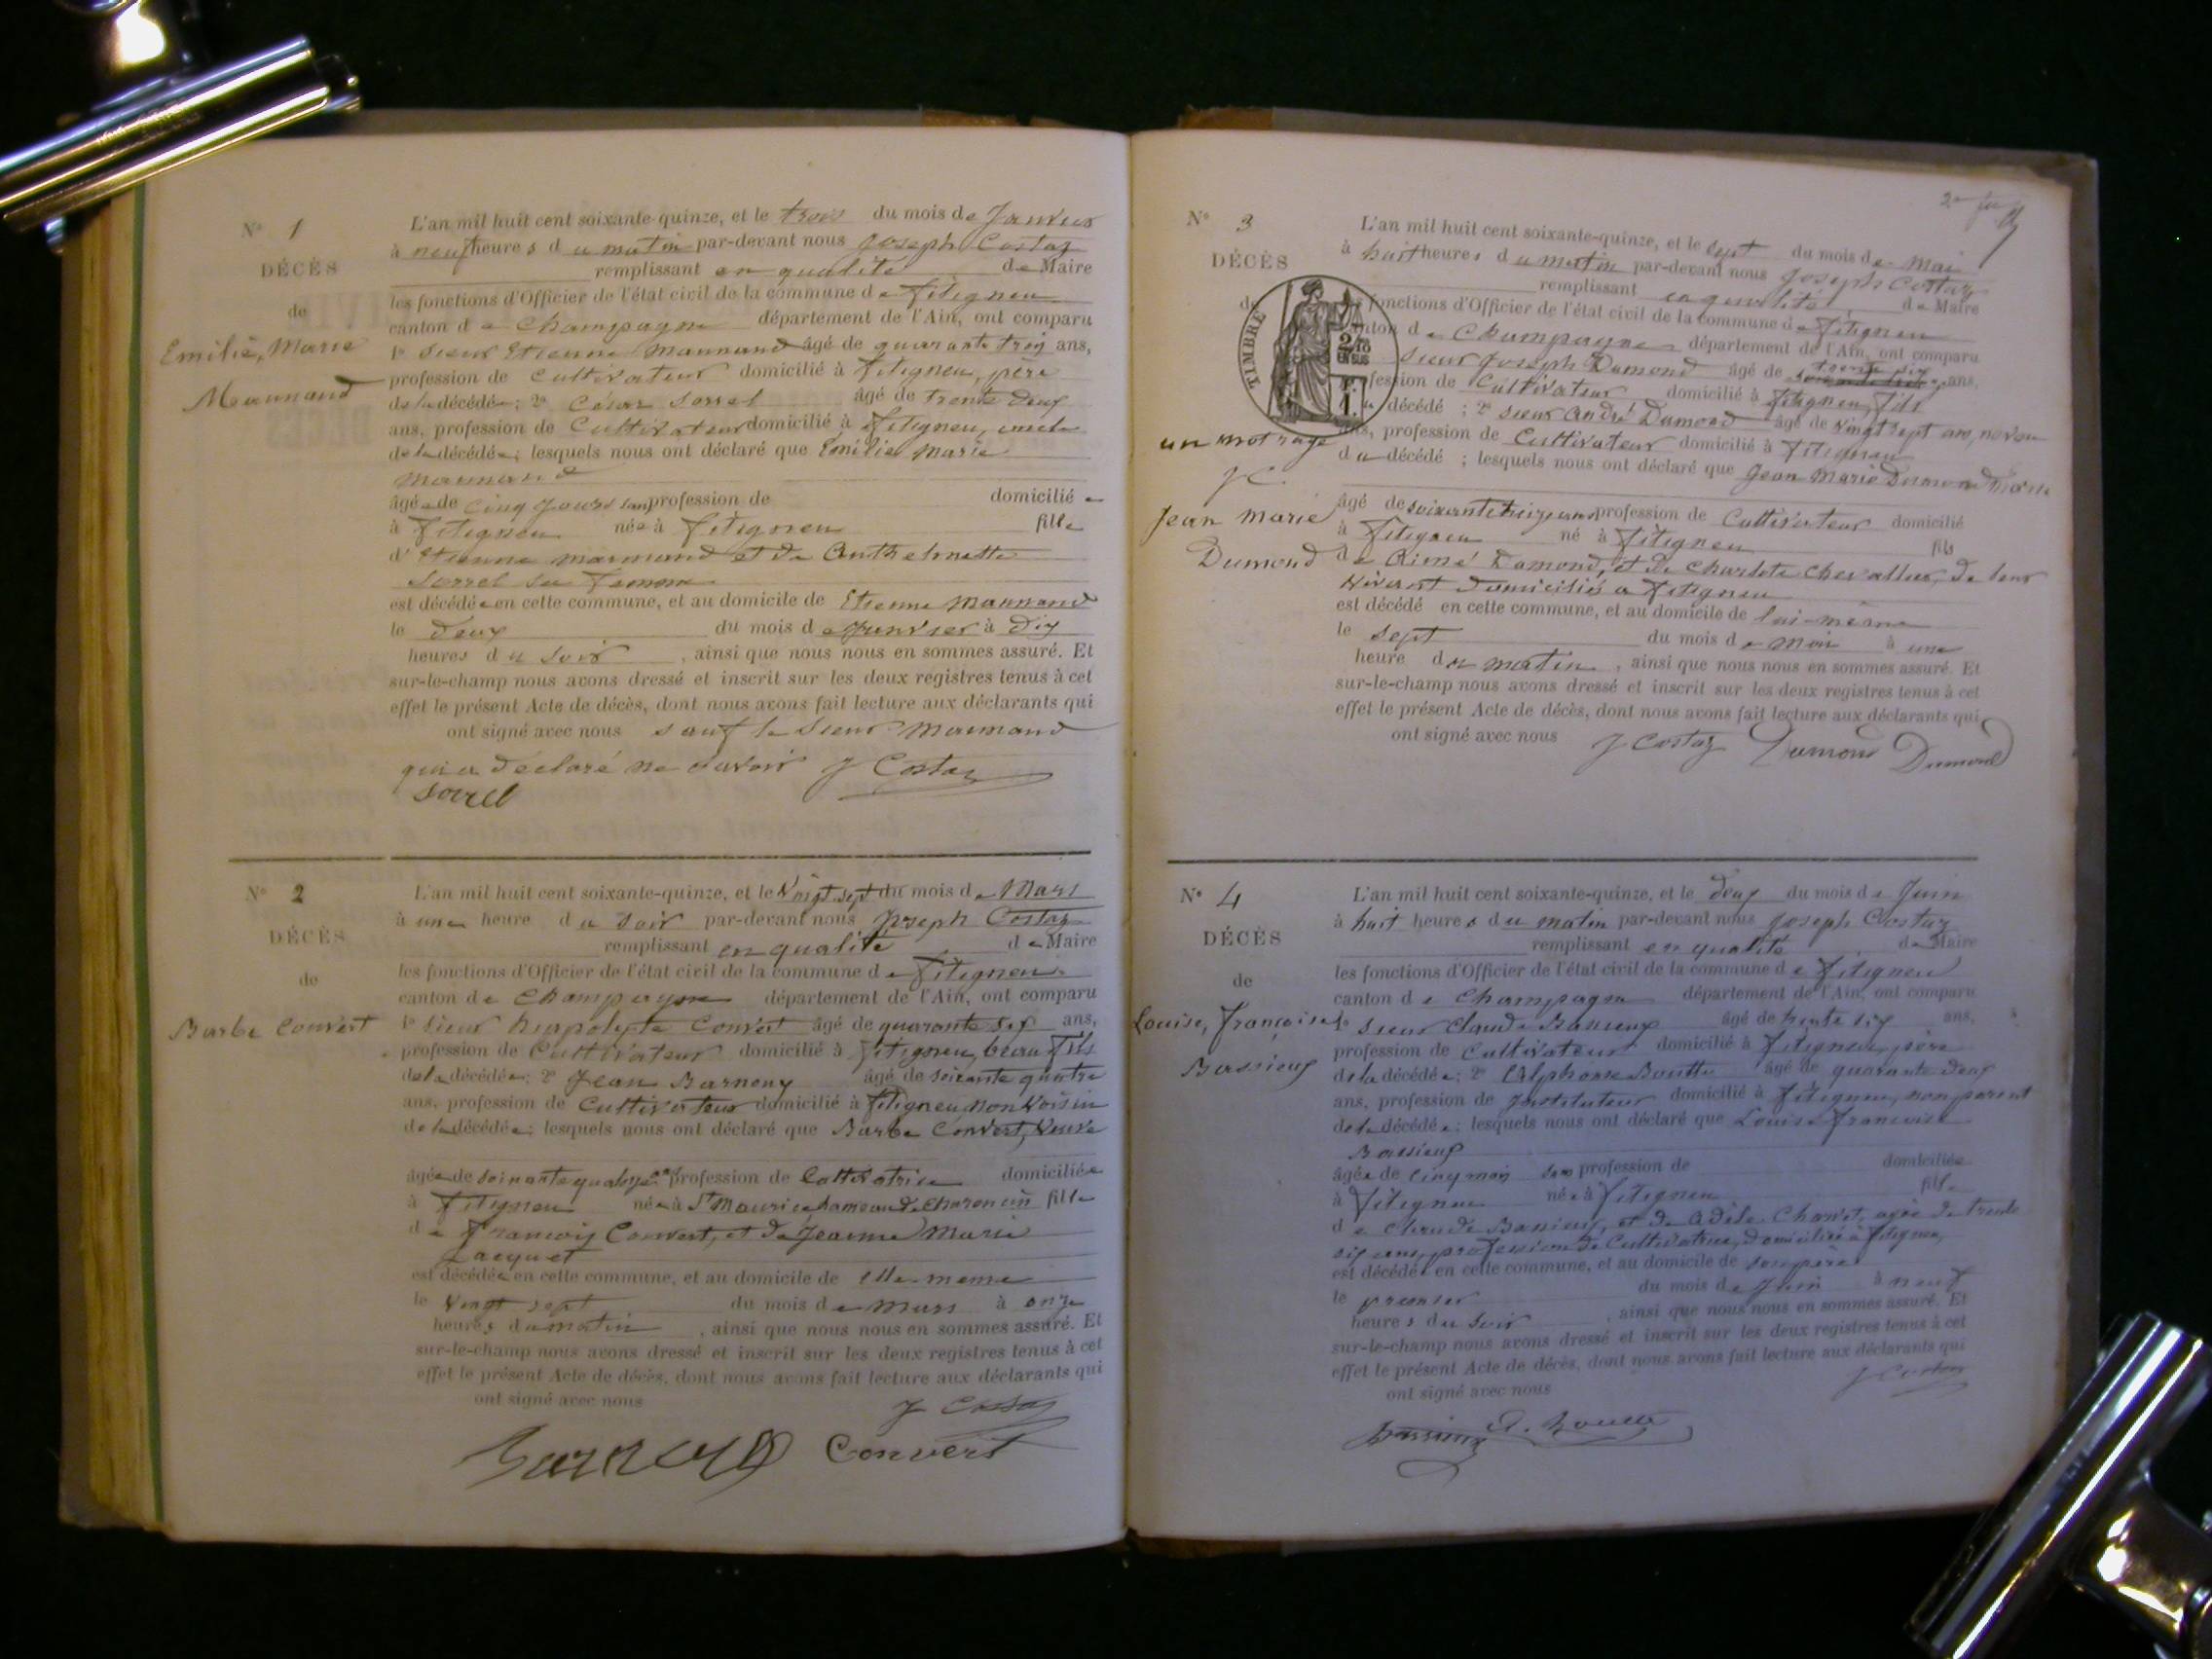 N° 1
DÉCÈS
de
Emilie, Marie
Mannand
L'an mil huit cent soixante-quinze, et le trois du mois de Janvier
à neuf heures du matin par-devant nous Joseph Costaz
remplissant en qualité de Maire
les fonctions d'Officier de l'état civil de la commune de Fitignieu
canton de Champagne département de l'Ain, ont comparu
1° sieur Etienne Mannand âgé de quarante trois ans,
profession de Cultivateur domicilié à Fitignieu, père
de la décédée; 2° César Sorrel âgé de trente deux
ans, profession de Cultivateur domicilié à Fitignieu, oncle
de la décédée; lesquels nous ont déclaré que Emilie Marie
Mannand
âgée de cinq jours san profession de domiciliée
à Fitignieu née à Fitignieu fille
d'Etienne Mannand et de Anthelmette
Sorrel sa femme
est décédée en cette commune, et au domicile de Etienne Mannand
le deux du mois de Janvier à dix
heures du soir, ainsi que nous nous en sommes assuré. Et
sur-le-champ nous avons dressé et inscrit sur les deux registres tenus à cet
effet le présent Acte de décès, dont nous avons fait lecture aux déclarants qui
ont signé avec nous sauf le Sieur Mannand
qui a déclaré ne savoir J Costaz
Sorrel
N° 2
DÉCÈS
de
Barbe Convert
L'an mil huit cent soixante-quinze, et le Vingt sept du mois de Mars
à une heure du soir par-devant nous Joseph Costaz
remplissant en qualité de Maire
les fonctions d'Officier de l'état civil de la commune de Fitignieu
canton de Champagne département de l'Ain, ont comparu
1° sieur hyppolyte Convert âgé de quarante six ans,
profession de Cultivateur domicilié à Fitignieu, beau fils
de la décédée; 2° Jean Barnouy âgé de soixante quatre
ans, profession de Cultivateur domicilié à Fitignieu non Voisin
de la décédée; lesquels nous ont déclaré que Barbe Convert, Veuve
âgée de soixante quatorze ans profession de Cultivatrice domiciliée
à Fitignieu née à St Maurice hameau de Charoncin fille
de François Convert, et de Jeanne Marie
Jacquet
est décédée en cette commune, et au domicile de elle-meme
le vingt sept du mois de Mars à onze
heures du matin, ainsi que nous nous en sommes assuré. Et
sur-le-champ nous avons dressé et inscrit sur les deux registres tenus à cet
effet le présent Acte de décès, dont nous avons fait lecture aux déclarants qui
ont signé avec nous J Costaz
Convert
N° 3
DÉCÈS
de
TIMBRE
un mot rayé
J C.
Jean Marie
Dumond
L'an mil huit cent soixante-quinze, et le sept du mois de Mai
à huit heures du matin par-devant nous Joseph Costaz
remplissant en qualité de Maire
les fonctions d'Officier de l'état civil de la commune de Fitignieu
canton de Champagne département de l'Ain, ont comparu
sieur Joseph Dumond âgé de trente six ans,
profession de Cultivateur domicilié à Fitignieu, fils
du décédé; 2° sieur André Dumond âgé de vingt sept ans, neveu
ans, profession de Cultivateur domicilié à Fitignieu
du décédé; lesquels nous ont déclaré que Jean Marie Dumond
âgé de soixante treize ans profession de Cultivateur domicilié
à Fitignieu né à Fitignieu fils
de Aimé Dumond, et de Charlote Chevallier, de leur
Vivant domiciliés a Fitignieu
est décédé en cette commune, et au domicile de lui-même
le sept du mois de mai à une
heure du matin, ainsi que nous nous en sommes assuré. Et
sur-le-champ nous avons dressé et inscrit sur les deux registres tenus à cet
effet le présent Acte de décès, dont nous avons fait lecture aux déclarants qui
ont signé avec nous J Costaz Dumond Dumond
N° 4
DÉCÈS
de
Louise, Françoise
Bassieux
L'an mil huit cent soixante-quinze, et le deux du mois de Juin
à huit heures du matin par-devant nous Joseph Costaz
remplissant en qualité de Maire
les fonctions d'Officier de l'état civil de la commune de Fitignieu
canton de Champagne département de l'Ain, ont comparu
1° sieur Claude Bassieux âgé de trente six ans,
profession de Cultivateur domicilié à Fitignieu, père
de la décédée; 2° Alphonse Boutte âgé de quarante deux
ans, profession de Instituteur domicilié à Fitignieu, non parent
de la décédée; lesquels nous ont déclaré que Louise Françoise
Bassieux
âgée de cinq mois san profession de domiciliée
à Fitignieu née à Fitignieu fille
de Claude Bassieux, et de Adèle Charvet, agée de trente
six ans, profession de Cultivatrice, domiciliée à Fitignieu,
est décédée en cette commune, et au domicile de son père
le premier du mois de Juin à neuf
heures du soir, ainsi que nous nous en sommes assuré. Et
sur-le-champ nous avons dressé et inscrit sur les deux registres tenus à cet
effet le présent Acte de décès, dont nous avons fait lecture aux déclarants qui
ont signé avec nous J Costaz
Bassieux